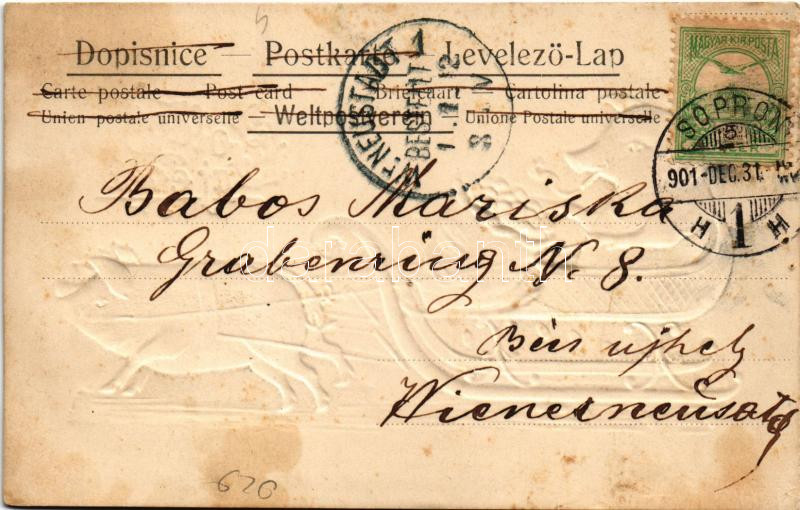 Dopisnice — Postkarte — Levelező-Lap
Carte postale — Post card — Briefkaart — Cartolina postale
Union postale universelle — Weltpostverein — Unione Postale universelle
MAGYAR KIR. POSTA
SOPRON
901-DEC.31.
H 1 H
NEUSTADT 1
BESTELLT
Babos Mariska
Grabenring N. 8.
Bécs ujhely
Wienerneustadt
626